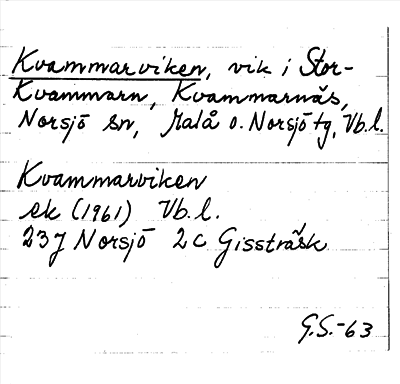 Kvammarviken, vik i Stor-
Kvammarn, Kvammarnäs,
Norsjö sn, Malå o. Norsjö tg, Vb.l.
Kvammarviken
ek (1961) Vb.l.
23J Norsjö 2c Gissträsk
G.S.-63